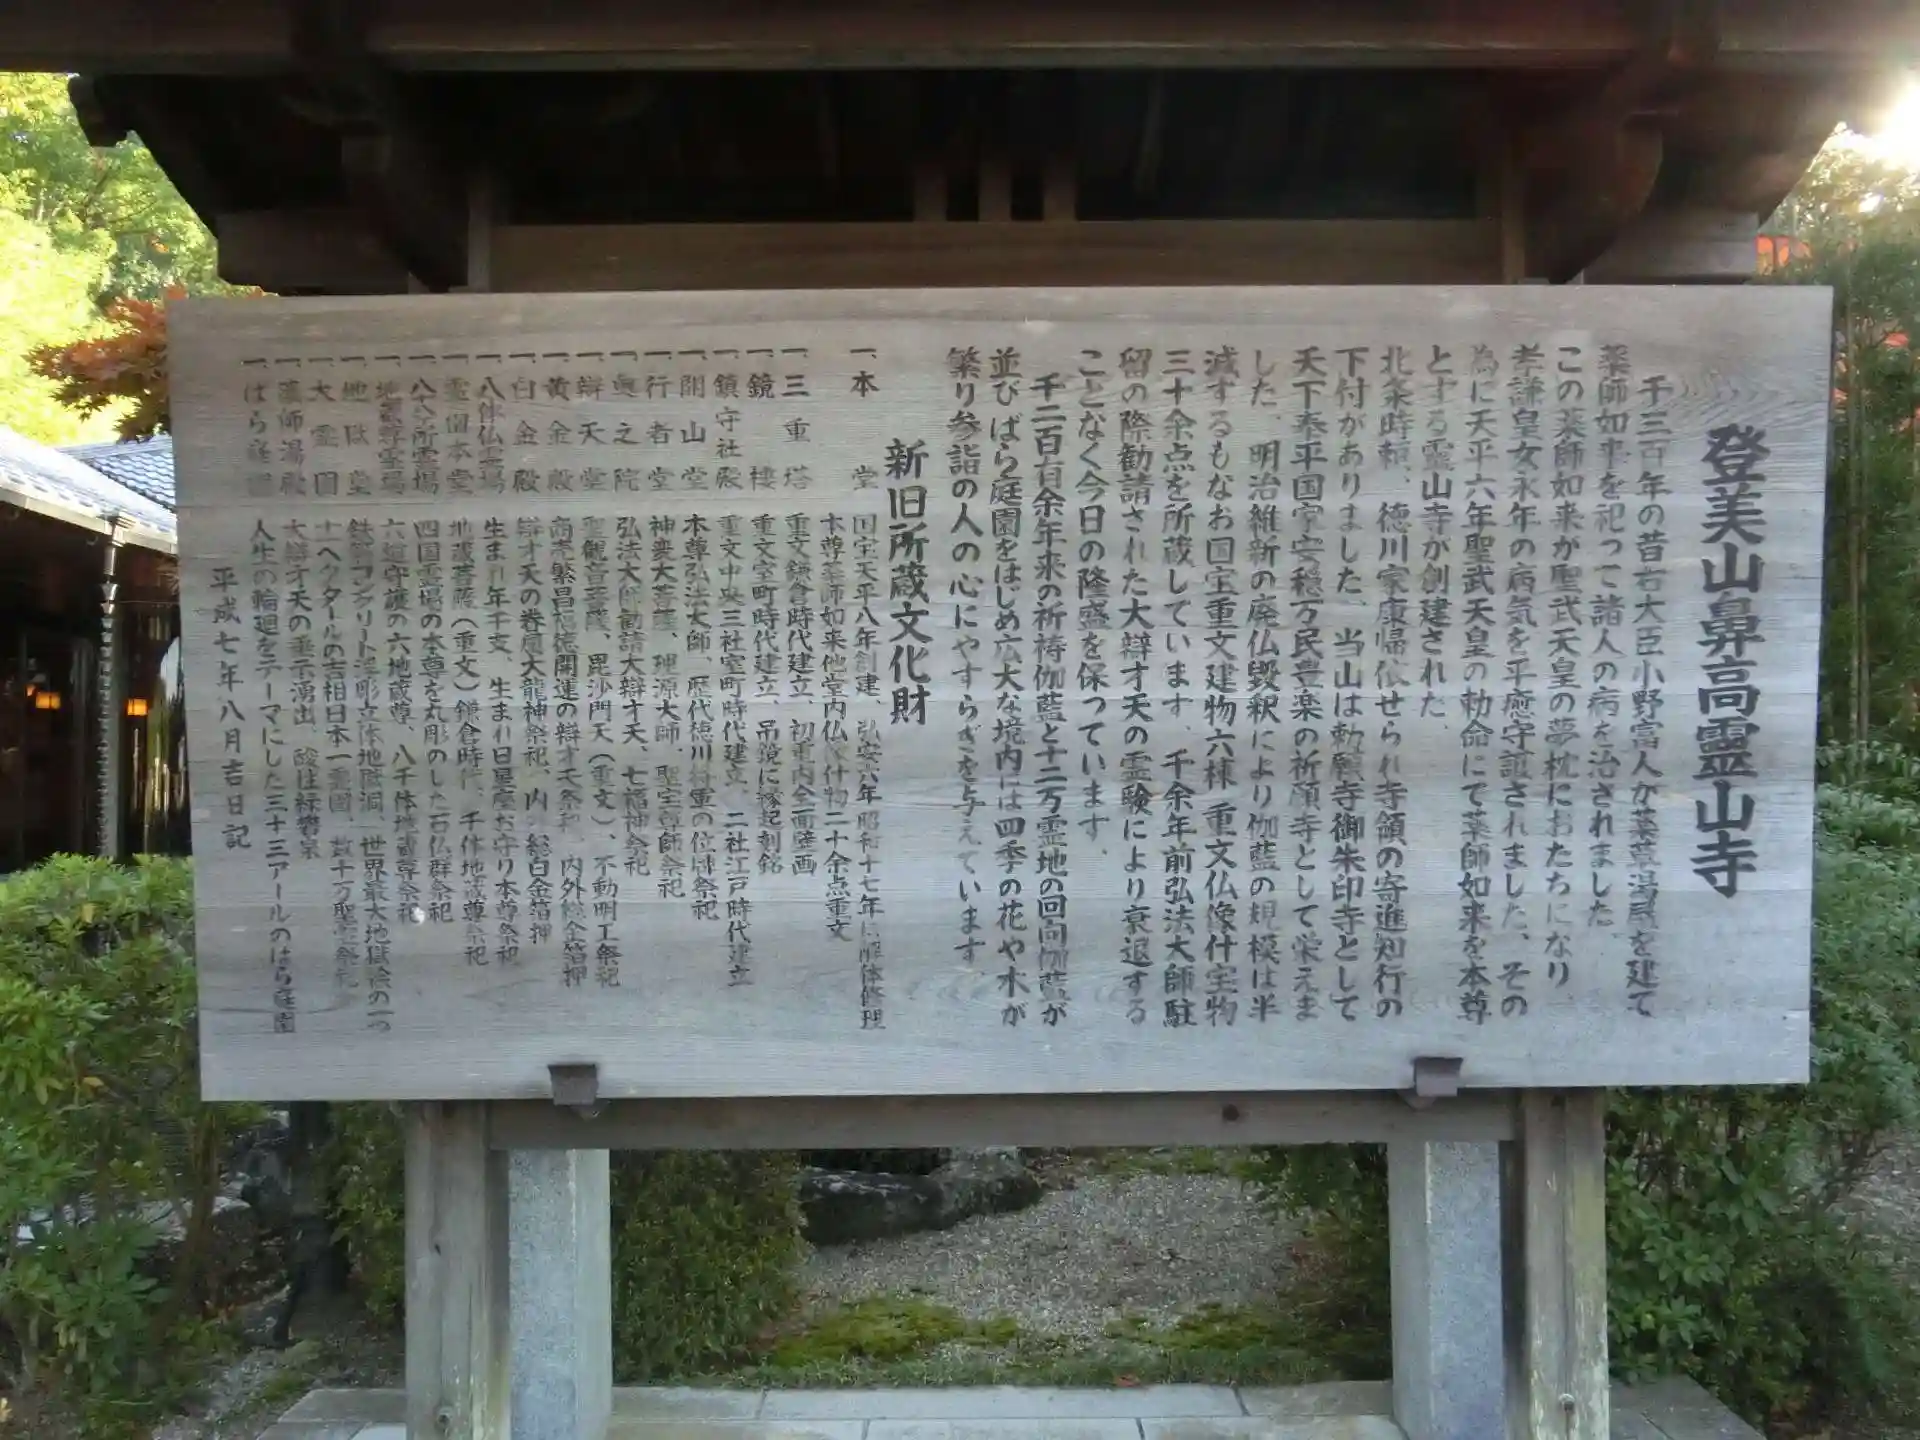 登美山鼻高霊山寺
千三百年の昔右大臣小野富人が薬草湯屋を建て
薬師如来を祀って諸人の病を治されました。
この薬師如来が聖武天皇の夢枕におたちになり
孝謙皇女永年の病気を平癒守護されました、その
為に天平六年聖武天皇の勅命にて薬師如来を本尊
とする霊山寺が創建された。
北条時頼、徳川家康帰依せられ寺領の寄進知行の
下付がありました、当山は勅願寺御朱印寺として
天下泰平国家安穏万民豊楽の祈願寺として栄えま
した、明治維新の廃仏毀釈により伽藍の規模は半
減するもなお国宝重文建物六棟重文仏像什宝物
三十余点を所蔵しています、千余年前弘法大師駐
留の際勧請された大辯才天の霊験により衰退する
ことなく今日の隆盛を保っています。
千二百有余年来の祈祷伽藍と十二万霊地の回向伽藍が
並びばら庭園をはじめ広大な境内には四季の花や木が
繁り参詣の人の心にやすらぎを与えています。
新旧所蔵文化財
一、本堂 国宝天平八年創建、弘安六年昭和十七年に解体修理
本尊薬師如来他堂内仏像什物二十余点重文
一、三重塔 重文鎌倉時代建立、初重内全面壁画
一、鐘楼 重文室町時代建立、吊鐘に縁起刻銘
一、鎮守社殿 重文中央三社室町時代建立、二社江戸時代建立
一、開山堂 本尊弘法大師、歴代徳川将軍の位牌祭祀
一、行者堂 神変大菩薩、理源大師、聖宝尊師祭祀
一、奥之院 弘法大師勧請大辯才天、七福神祭祀
一、辯天堂 聖観音菩薩、毘沙門天（重文）、不動明王祭祀
一、黄金殿 商売繁昌福徳開運の辯才天祭祀、内外総金箔押
一、白金殿 辯才天の眷属大龍神祭祀、内外総白金箔押
一、八体仏霊場 生まれ年干支、生まれ日星座お守り本尊祭祀
一、霊園本堂 地蔵菩薩（重文）鎌倉時代、千体地蔵尊祭祀
一、八十八ヶ所霊場 四国霊場の本尊を丸彫のした石仏群祭祀
一、地蔵尊霊場 六道守護の六地蔵尊、八千体地蔵尊祭祀
一、地獄堂 鉄筋コンクリート浮彫立体地獄洞、世界最大地獄絵の一つ
一、大霊園 十一ヘクタールの吉相日本一霊園、数十万聖霊祭祀
一、薬師湯殿 大辯才天の垂示湧出、酸性緑礬泉
一、ばら庭園 人生の輪廻をテーマにした三十三アールのばら庭園
平成七年八月吉日記